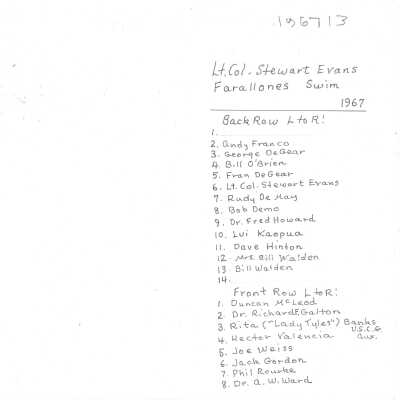 186713
Lt. Col. Stewart Evans
Farallones Swim
1967
Back Row L to R!
1.
2. Andy Franco
3. George DeGear
4. Bill O'Brien
5. Fran DeGear
6. Lt. Col. Stewart Evans
7. Rudy De May
8. Bob Demo
9. Dr. Fred Howard
10. Lui Kaopua
11. Dave Hinton
12. Mrs. Bill Walden
13. Bill Walden
14.
Front Row L to R!
1. Duncan McLeod
2. Dr. Richard F. Galton
3. Rita ("Lady Tyles") Banks U.S.C.G. Aux.
4. Hector Valencia
5. Joe Weiss
6. Jack Gordon
7. Phil Rourke
8. Dr. A. W. Ward